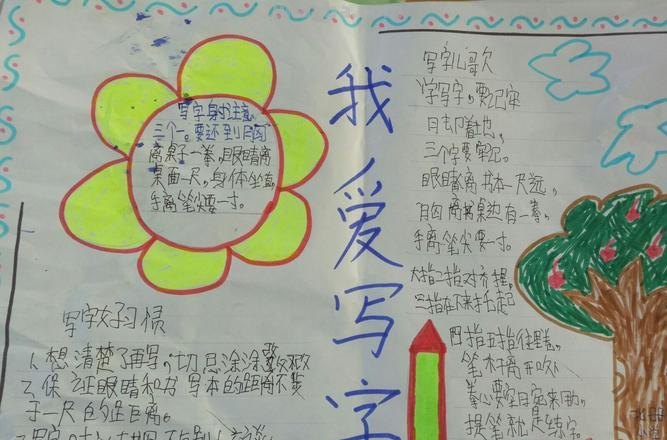 我爱写字
写字身书注意,
三个一。要还到胸
离桌子一拳,眼睛离
桌面一尺,身体坐直,
手离笔尖要一寸。
写字好习惯
1、想清楚了再写,切忌涂涂改改
2、保证眼睛和书写本的距离不要
于一尺的距离。
写字儿歌欠
学写字,要记牢
三个字要牢记。
眼睛离书本一尺远,
胸离书桌边有一拳,
手离笔尖要一寸。
大指二指对齐捏,
三指在下来托起
四指五指往里
提笔就是练字